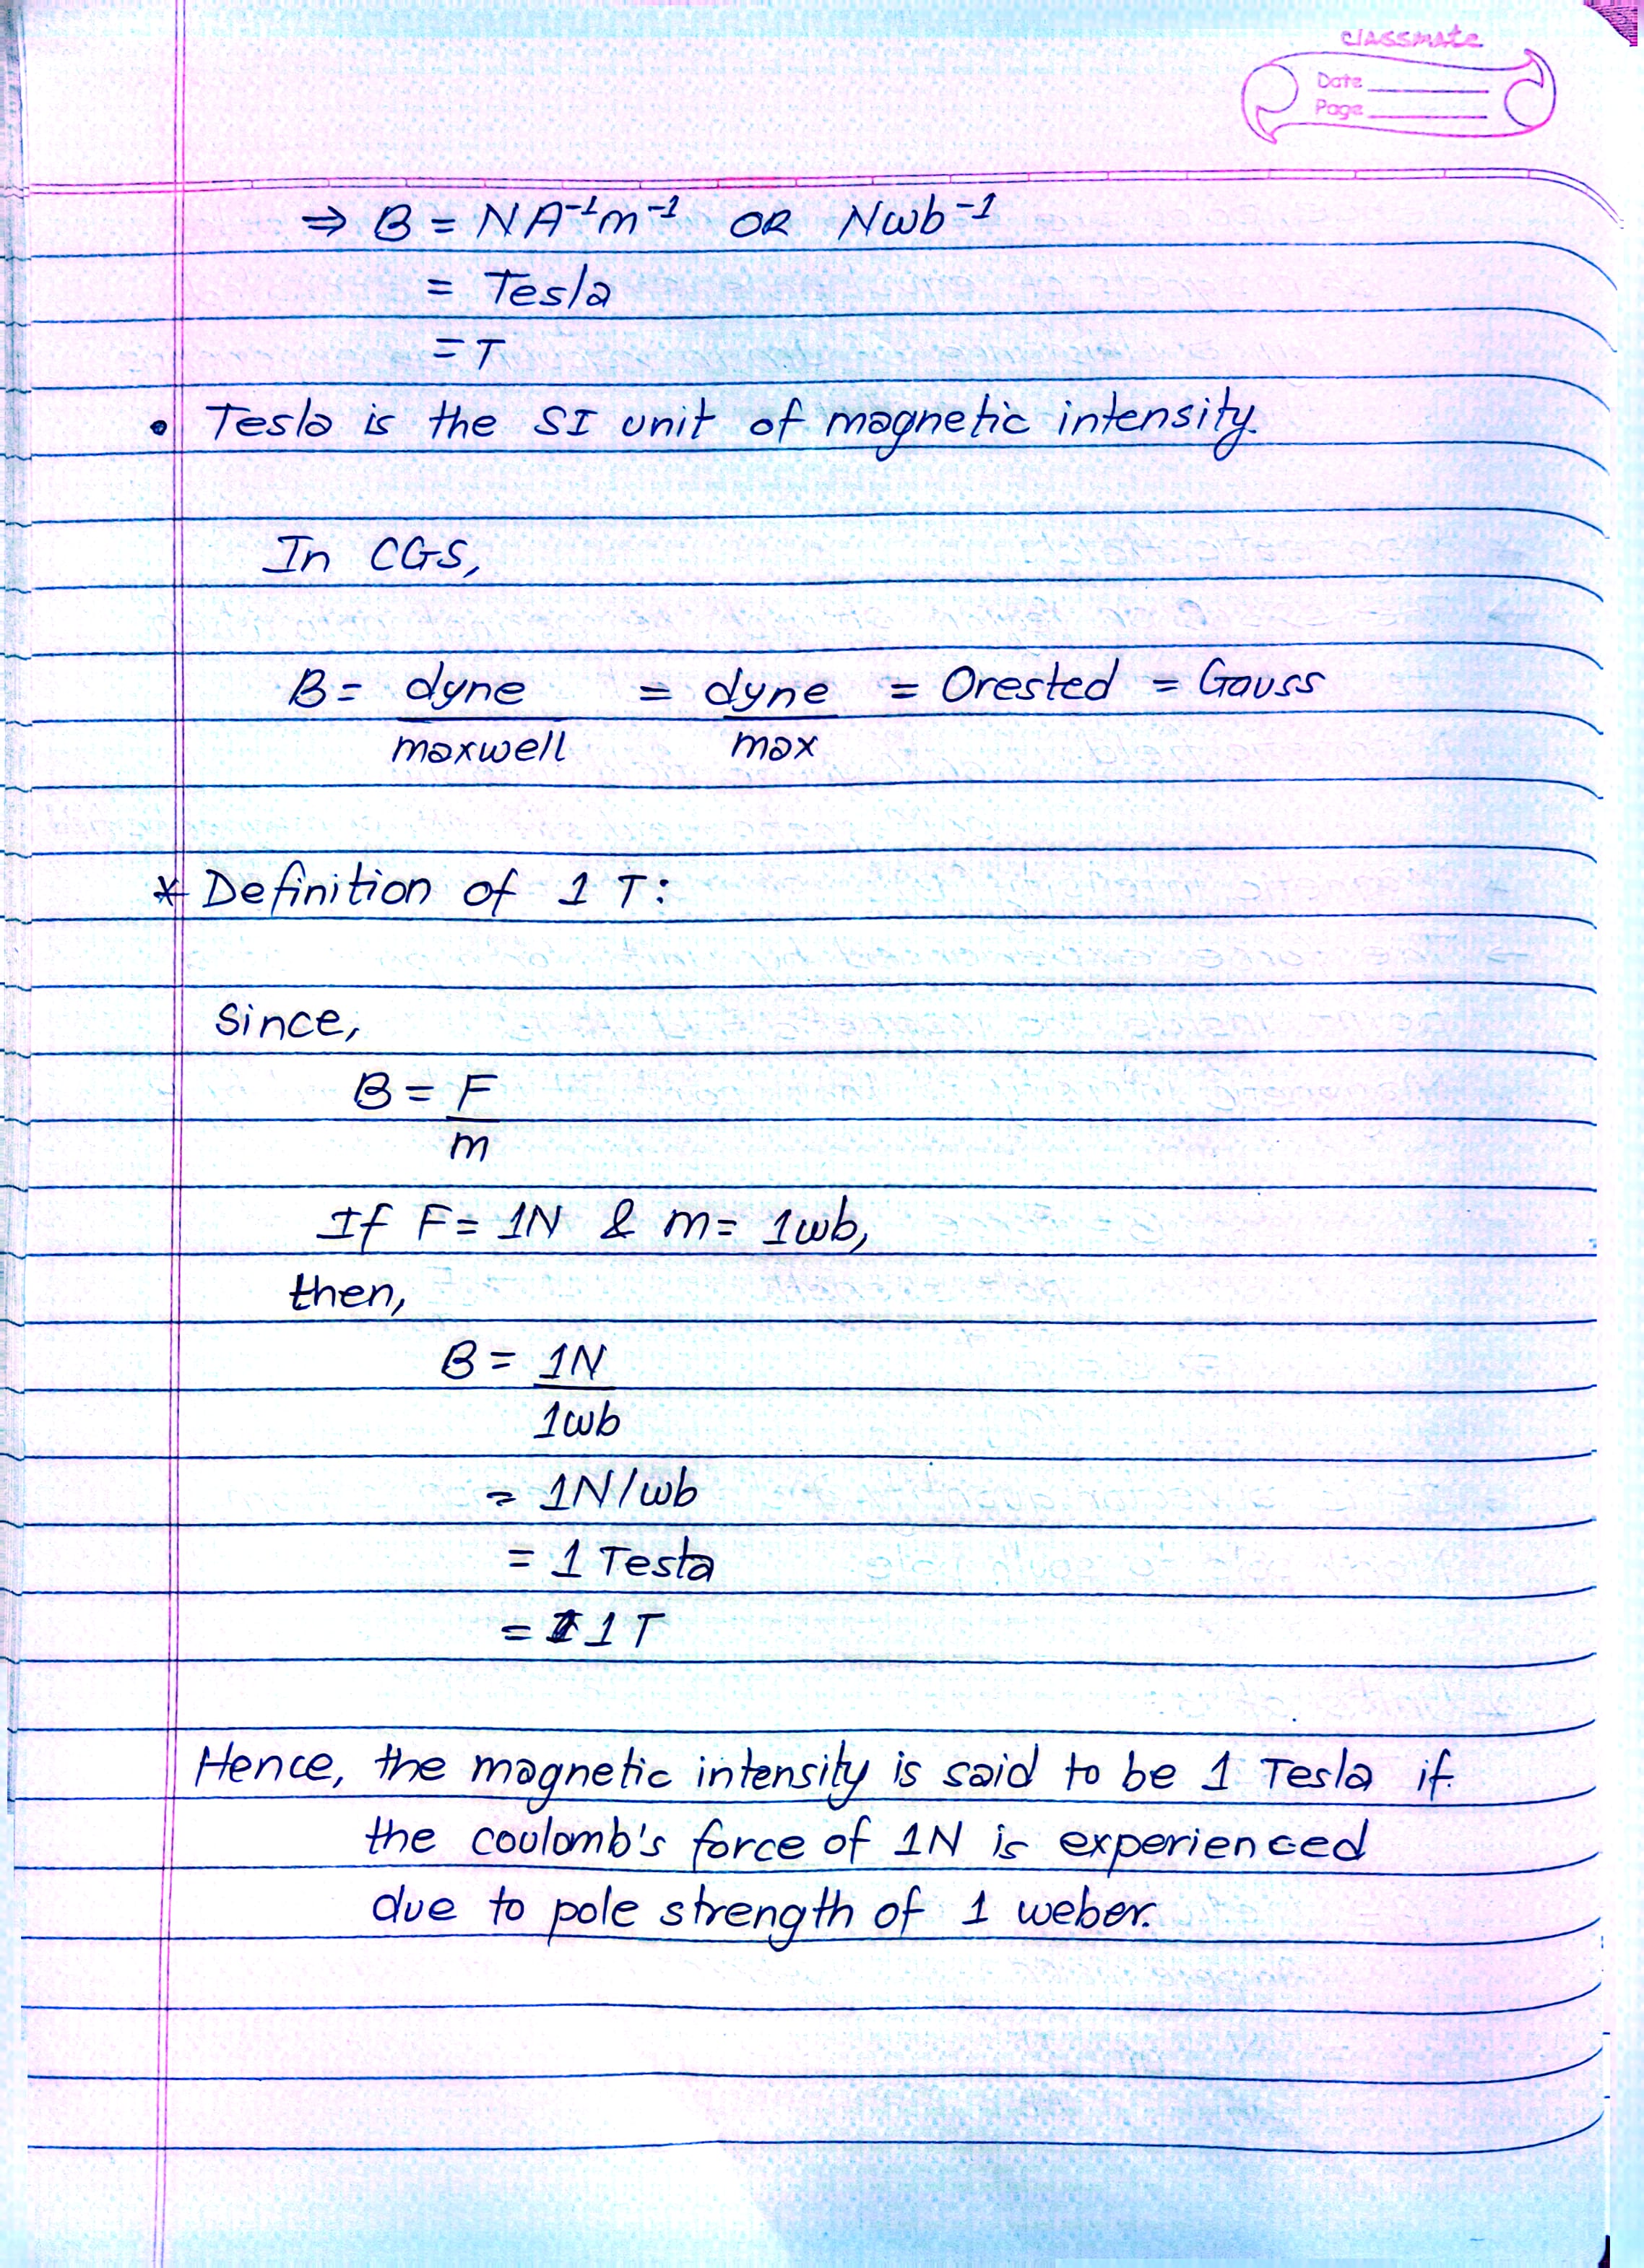 classmate
Date
Page
⇒ B = NA⁻¹m⁻¹ OR Nwb⁻¹
= Tesla
= T
• Tesla is the SI unit of magnetic intensity.
In CGS,
B = dyne/maxwell = dyne/max = Orested = Gauss
* Definition of 1 T:
Since,
B = F/m
If F = 1N & m = 1wb,
then,
B = 1N/1wb
= 1N/wb
= 1 Tesla
= 1T
Hence, the magnetic intensity is said to be 1 Tesla if
the coulomb's force of 1N is experienced
due to pole strength of 1 weber.